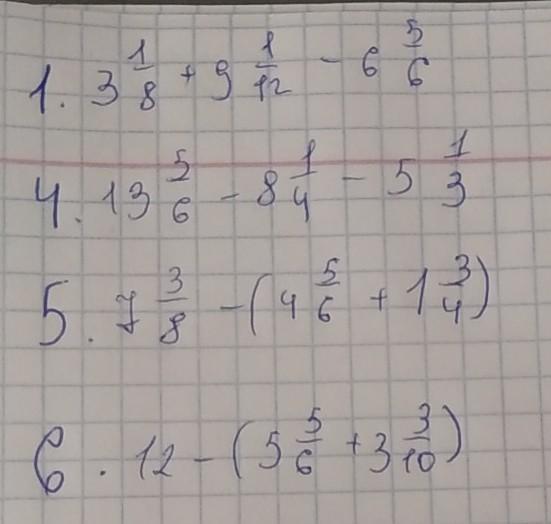 1. 3 1/8 + 9 1/12 - 6 5/6
4. 13 5/6 - 8 1/4 - 5 1/3
5. 7 3/8 - (4 5/6 + 1 3/4)
6. 12 - (5 5/6 + 3 3/10)